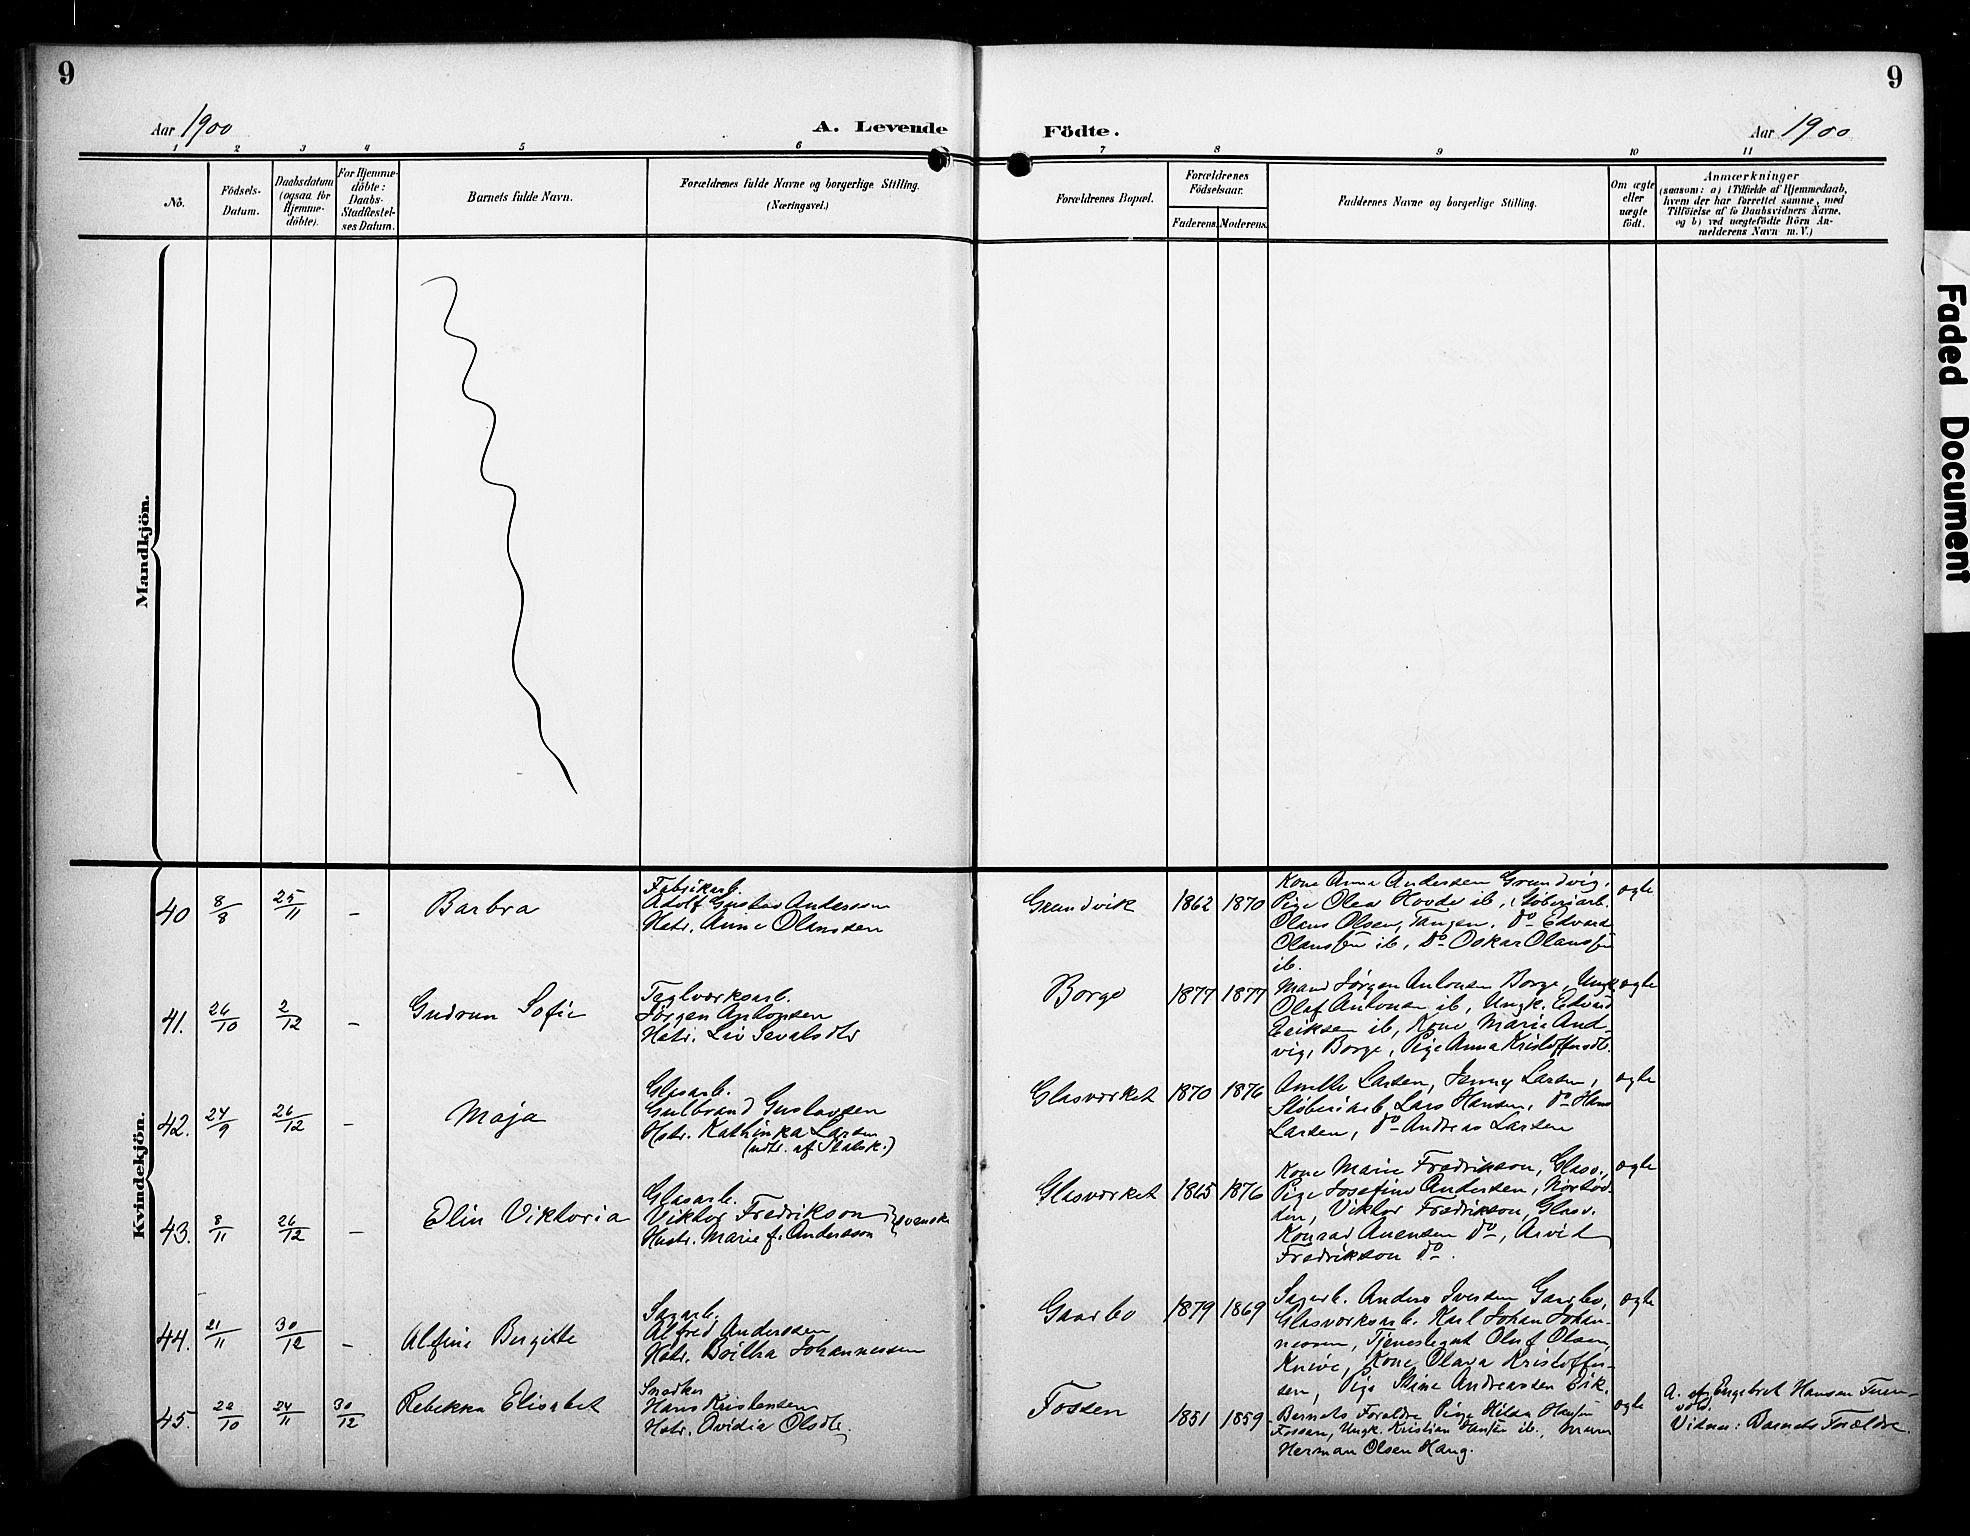 9
9
Aar 1900
A. Levende
Födte.
Aar 1900
1 2 3 4 5 6 7 8 9 10 11
No.
Födsels-
Datum.
Daabsdatum
(ogsaa for
Hjemme-
döbte).
For Hjemme-
döbte:
Daabs-
Stadfestel-
ses Datum.
Barnets fulde Navn.
Forældrenes fulde Navne og borgerlige Stilling.
(Næringsvei.)
Forældrenes Bopæl.
Forældrenes
Födselsaar.
Faderens.
Moderens.
Faddernes Navne og borgerlige Stilling.
Om ægte
eller
uægte
födt.
Anmærkninger
(saasom: a) i Tilfælde af Hjemmedaab,
hvem der har forrettet samme, med
Tilföielse af to Daabsvidners Navne,
og b) ved uægtefödte Börn An-
melderens Navn m. V.)
Mandkjön.
Kvindekjön.
40
8/8
25/11
-
Barbra
Fabrikarb.
Adolf Gustav Anderssen
Hstr. Anne Olaussen
Grundvik
1862
1870
Kone Anna Anderssen Grundvig,
Pige Olea Hovde ib., Støberiarb.
Olaus Olsen, Tangen, Do Edvard
Olaussen ib, Do Oskar Olaussen
ib.
ægte
41.
26/10
2/12
-
Gudrun Sofie
Teglværksarb.
Jørgen Antonsen
Hstr. Liv Sevalsdtr
Borge
1877
1877
Mand Jørgen Antonsen Borge, Ungk
Olaf Antonsen ib, Ungk. Edvard
Eriksen ib, Kone Marie And-
vig, Borge, Pige Anna Kristoffersdt.
ægte
42.
24/9
26/12
-
Maja
Glasarb.
Gulbrand Gustavsen
Hstr. Kathinka Larsen
(udtr. af Statsk.)
Glasværket
1870
1876
Anette Larsen, Jenny Larsen,
Støberiarb Lars Hansen, do Hans
Larsen, do Andreas Larsen
ægte
43.
8/11
26/12
-
Elin Viktoria
Glasarb.
Viktor Fredrikson
Hustr. Marie f. Andersson
svenske
Glasværket
1865
1876
Kone Marie Fredrikson, Glasv.,
Pige Josefine Andersen, Norsød-
den, Viktor Fredrikson, Glasv.
Konrad Auensen do, Arvid
Fredrikson do.
ægte
44.
21/11
30/12
-
Alfine Birgitte
Sagarb.
Alfred Anderssen
Hstr. Johannessen
Gaarbo
1879
1869
Sagarb. Anders Iversen Gaarbo,
Glasværksarb. Karl Johan Johan-
nessen, Tjenestegut Oluf Olsen
Knive, Kone Olava Kristoffer-
sen, Pige Stine Andreassen Eik.
ægte
45.
22/10
24/11
30/12
Rebekka Elisabet
Snedker
Hans Kristensen
Hstr. Avidia Olsdtr.
Fossen
1851
1859
Barnets Forældre Pige Hilda Hansen
Fossen, Ungk. Kristian Hansen ib.,
Herman Olsen Haug.
ægte
A. af Engebret Hansen
Vidner: Barnets Forældre.
Faded Document